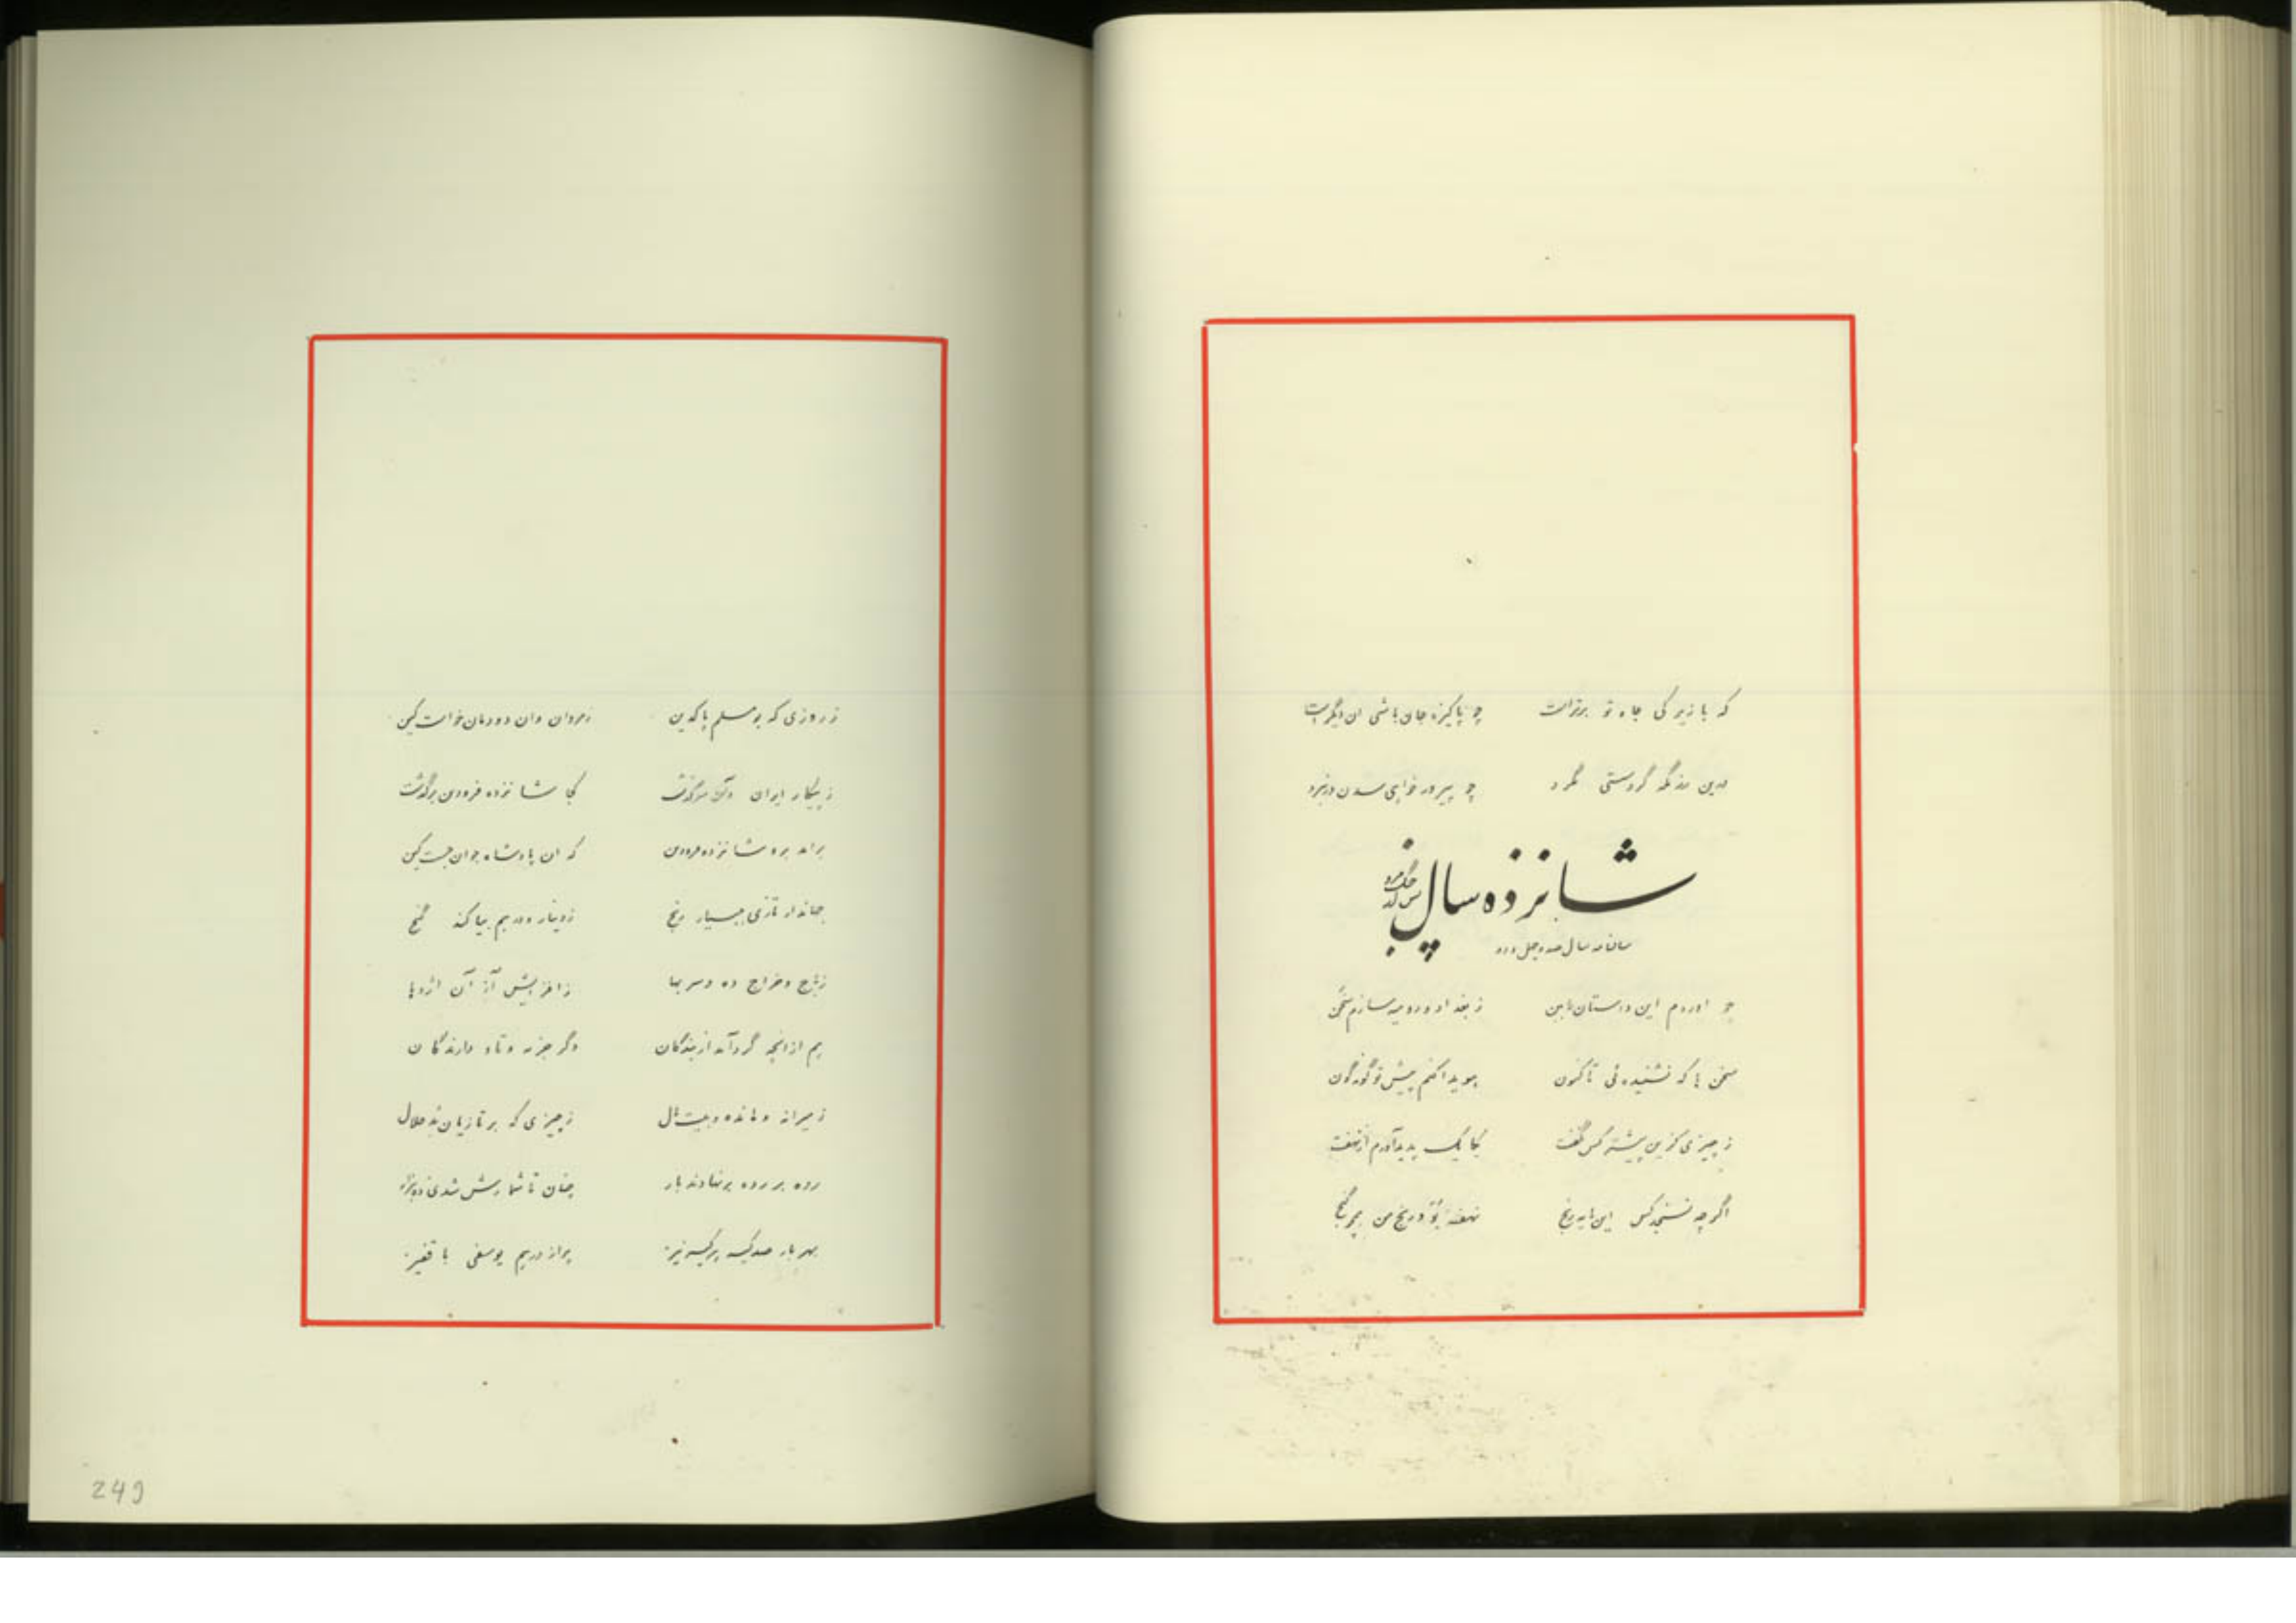 که با زیرکی جاه تو برتر است چو پاکیزه جان باشی آن دیگر است
گر دستی چو پیروز خواهی
شانزده سال پس
سال صد و چهل و
چو آوردم این داستان را ببن ز بغداد و رومیه سازم سخن
سخن ها که نشنیده ئی تا کنون هویدا کنم پیش تو گونه گون
ز چیزی کزین پیشتر کس نگفت یکایک پدید آورم از نهفت
اگر چه نسنجد کس این مایه رنج نهفته بود رنج من همچو گنج
ز روزی که بومسلم پاکدین ز مروان وان دودمان خواست کین
ز پیکار ایران سرگذشت کجا شانزده فرودین برگذشت
بر آمد برو شانزده فرودین که آن پادشاه جوان جست کین
جهاندار تازی ببسیار رنج ز دینار و درهم بیاکند گنج
ز باج و خراج ده و سر بها ز افزایش آز آن اژدها
هم از آنچه گرد آمد از بندگان دگر جزیه و تاو دارندگان
ز میرانه و مانده و بیت مال ز چیزی که بر تازیان بد حلال
رده بر رده بر نهادند بار چنان تا شمارش شدی ده هزار
بهر بار صد کیسه بر کیسه نیز پر از درهم یوسفی با قفیز
249